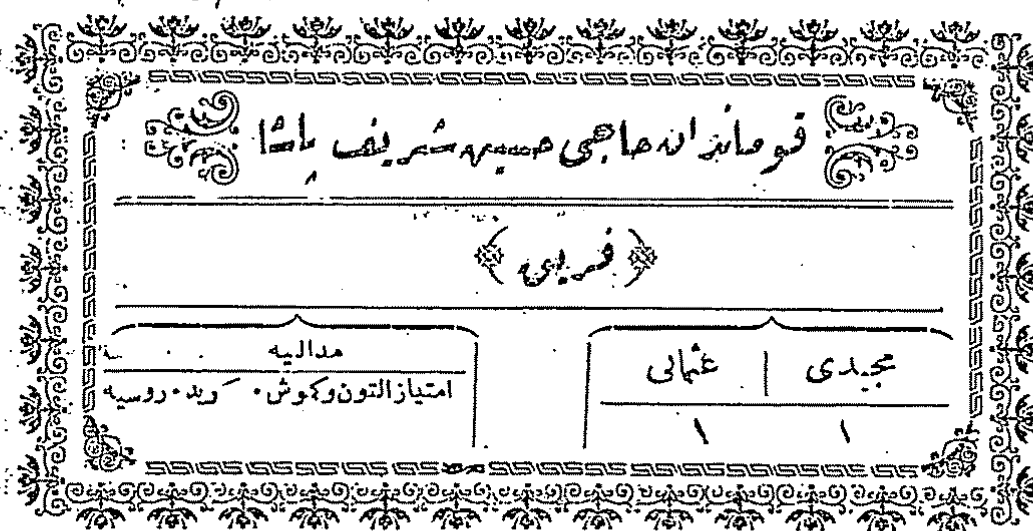 قوماندان حاجی حسین شریف پاشا
﴿ فریق ﴾
مجیدی | عثمانی
۱ ۱
مدالیه
امتیاز التون وکموش .روسیه